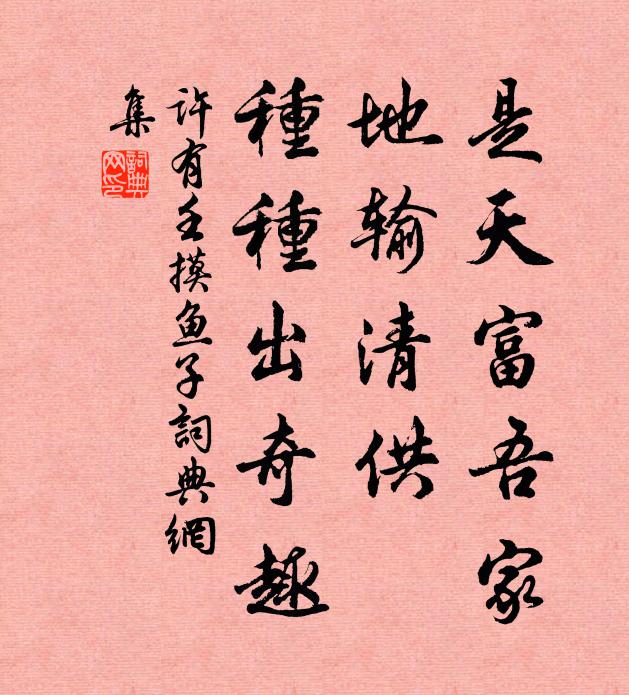 是天富吾家
地输清供
種種出奇趣
许有壬摸鱼子詞典網
集
詞典网印